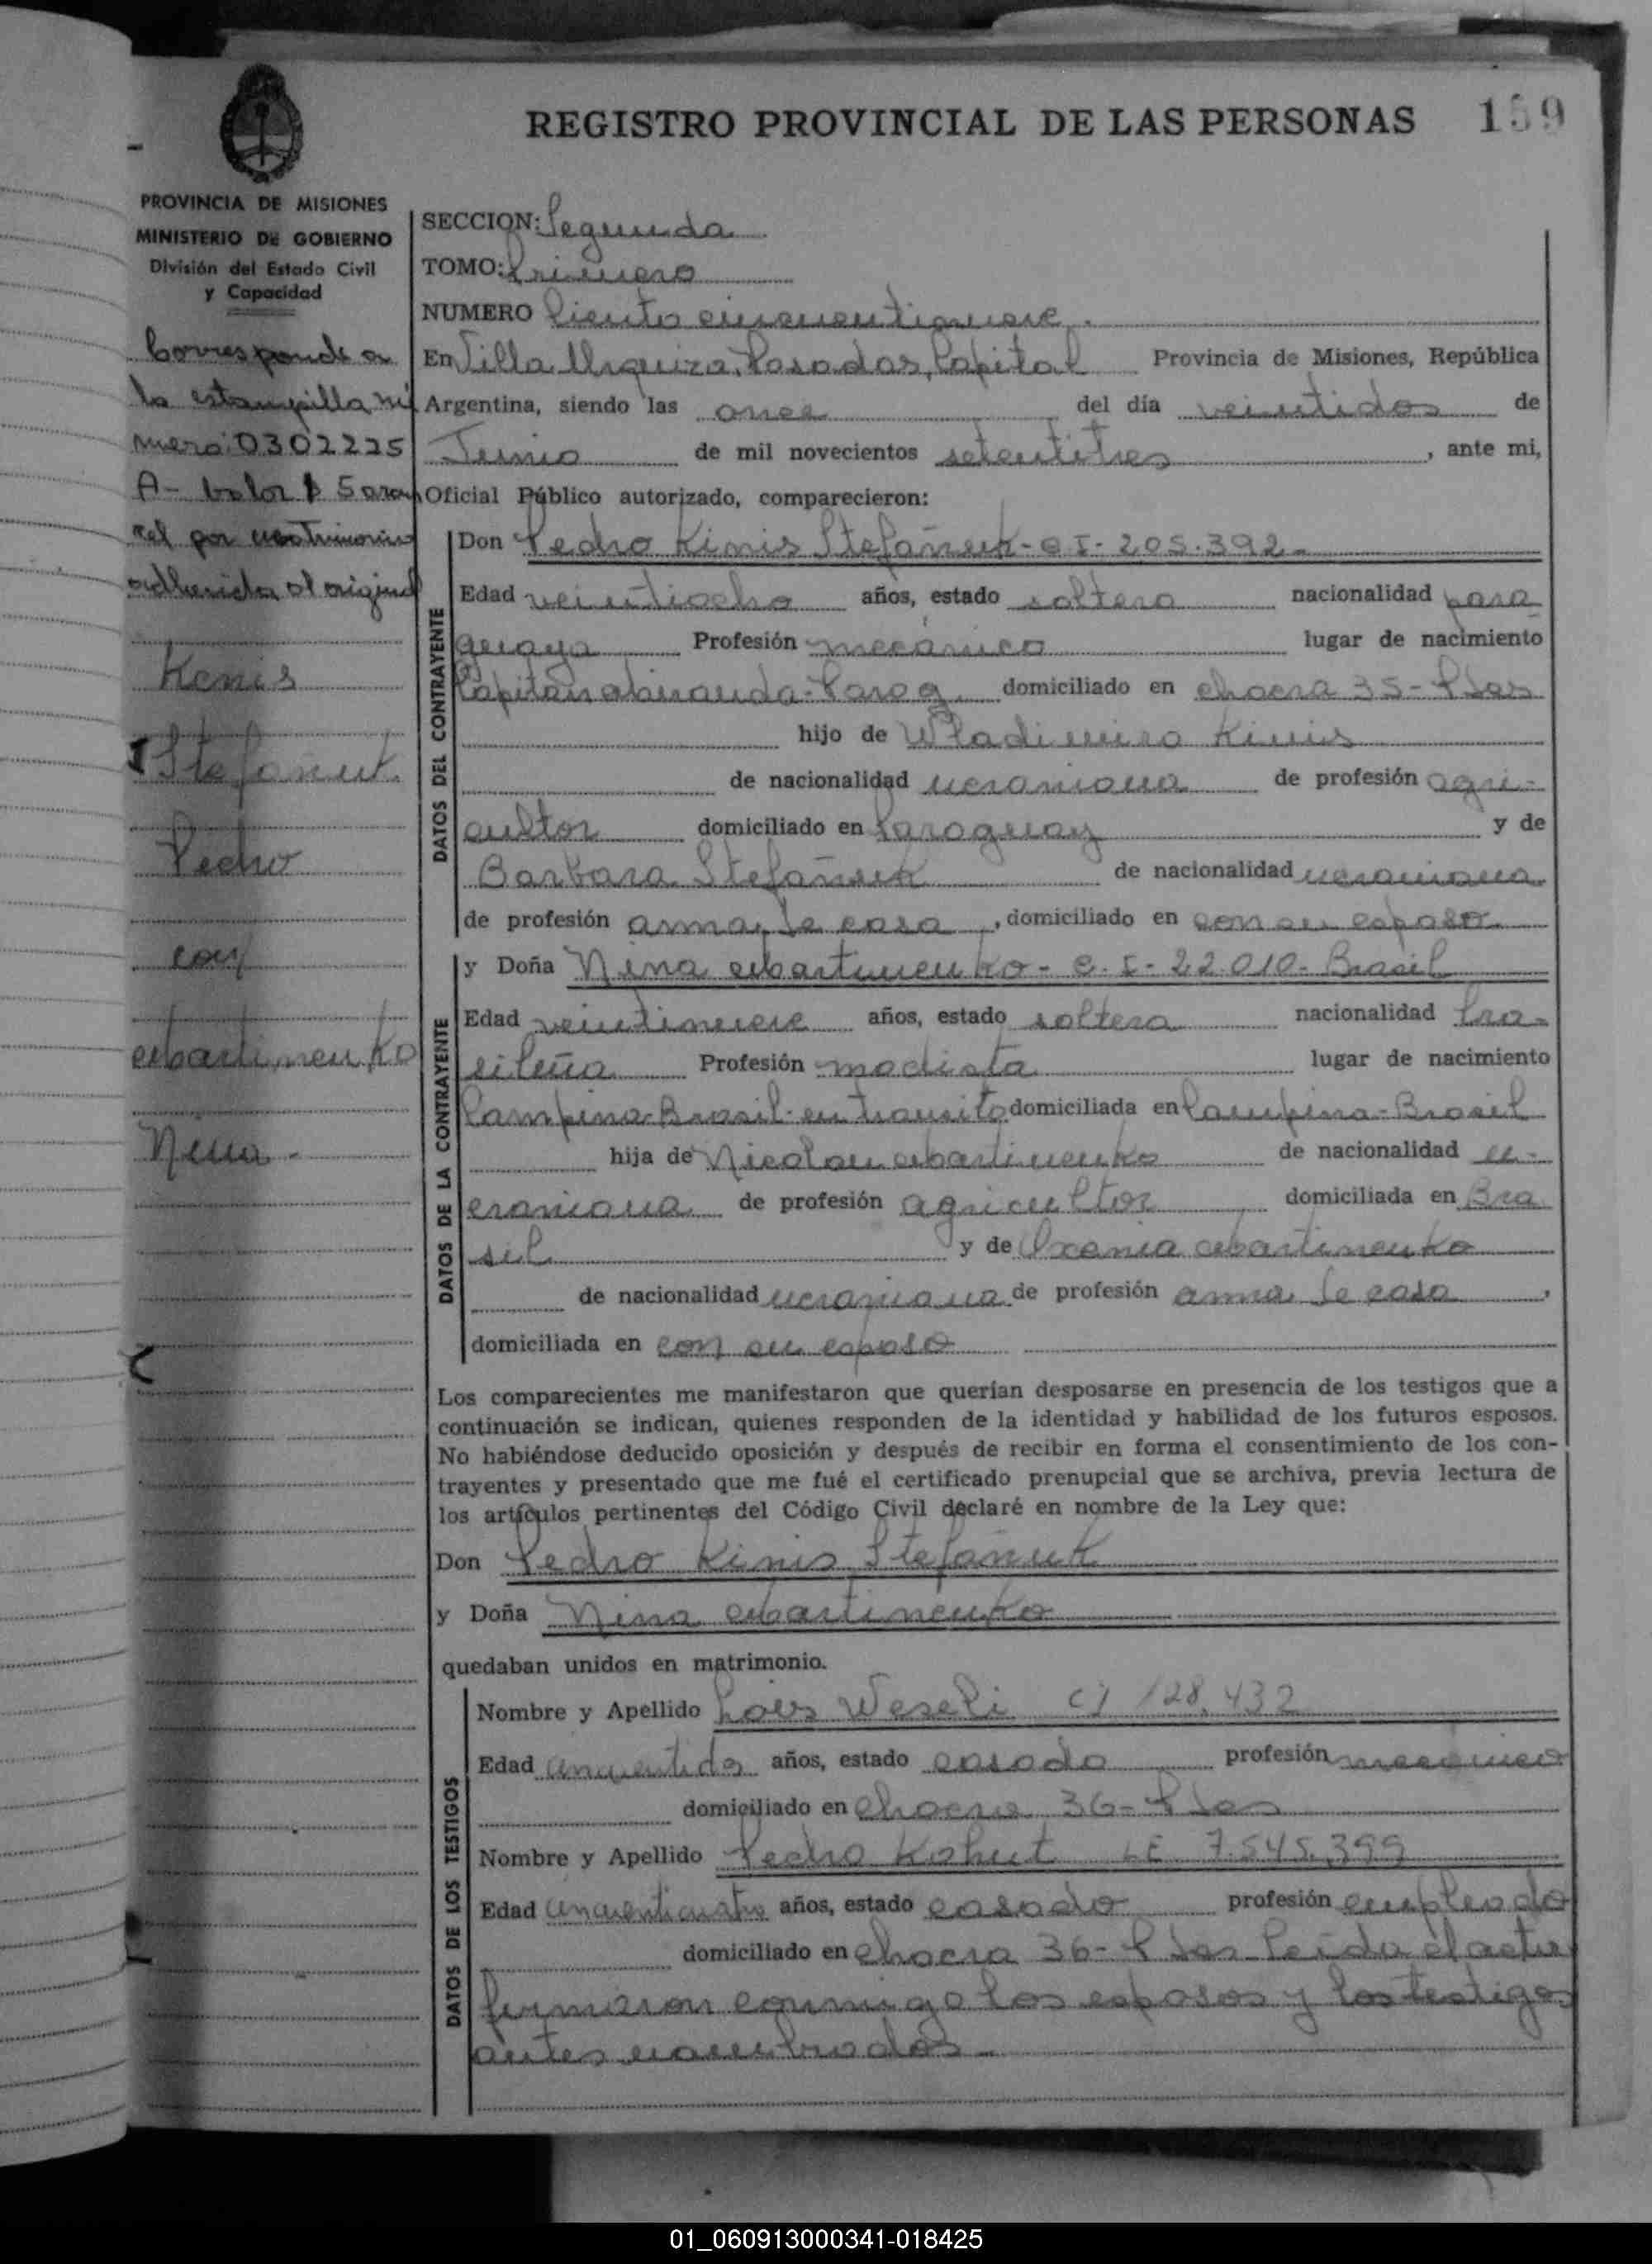 REGISTRO PROVINCIAL DE LAS PERSONAS 159
PROVINCIA DE MISIONES
MINISTERIO DE GOBIERNO
División del Estado Civil
y Capacidad
Corresponde a
la estampilla nú
mero 0302225
A- valor $ 5 aran
cel por matrimonio
adherida al original
Kenis
Stefaniut
Pedro
con
Martinenko
Nina -
SECCION: Segunda
TOMO: Primero
NUMERO Ciento cincuentinueve.
En Villa Urquiza, Posadas, Capital Provincia de Misiones, República
Argentina, siendo las once del día veintidos de
Junio de mil novecientos setentitres, ante mi,
Oficial Público autorizado, comparecieron:
DATOS DEL CONTRAYENTE
Don Pedro Kinis Stefañuk - C.I- 205.392-
Edad veintiocho años, estado soltero nacionalidad para
guaya Profesión mecánico lugar de nacimiento
Capitán Miranda - Parag. domiciliado en chacra 35 - Pdas
hijo de Wladimiro Kinis
de nacionalidad ucraniana de profesión agri-
cultor domiciliado en Paraguay y de
Barbara Stefañuk de nacionalidad ucraniana
de profesión ama de casa, domiciliado en con su esposo
DATOS DE LA CONTRAYENTE
y Doña Nina Martinenko - C.I- 22.010- Brasil
Edad veintinueve años, estado soltera nacionalidad bra-
sileña Profesión modista lugar de nacimiento
Campina-Brasil-en transito domiciliada en Campina - Brasil
hija de Nicolau Martinenko de nacionalidad u-
craniana de profesión agricultor domiciliada en Bra
sil y de Oxenia Martinenko
de nacionalidad ucraniana de profesión ama de casa,
domiciliada en con su esposo
Los comparecientes me manifestaron que querían desposarse en presencia de los testigos que a
continuación se indican, quienes responden de la identidad y habilidad de los futuros esposos.
No habiéndose deducido oposición y después de recibir en forma el consentimiento de los con-
trayentes y presentado que me fué el certificado prenupcial que se archiva, previa lectura de
los artículos pertinentes del Código Civil declaré en nombre de la Ley que:
Don Pedro Kinis Stefaniuk
y Doña Nina Martinenko
quedaban unidos en matrimonio.
DATOS DE LOS TESTIGOS
Nombre y Apellido Weseli CI 128.432
Edad cincuentidos años, estado casado profesión mecanico
domiciliado en chacra 36 - Pdas
Nombre y Apellido Pedro Kohut LE 7.545.399
Edad cincuenticuatro años, estado casado profesión empleado
domiciliado en chacra 36 - Pdas - Leida el acta
firmaron conmigo los esposos y los testigos
antes nombrados -
01_060913000341-018425